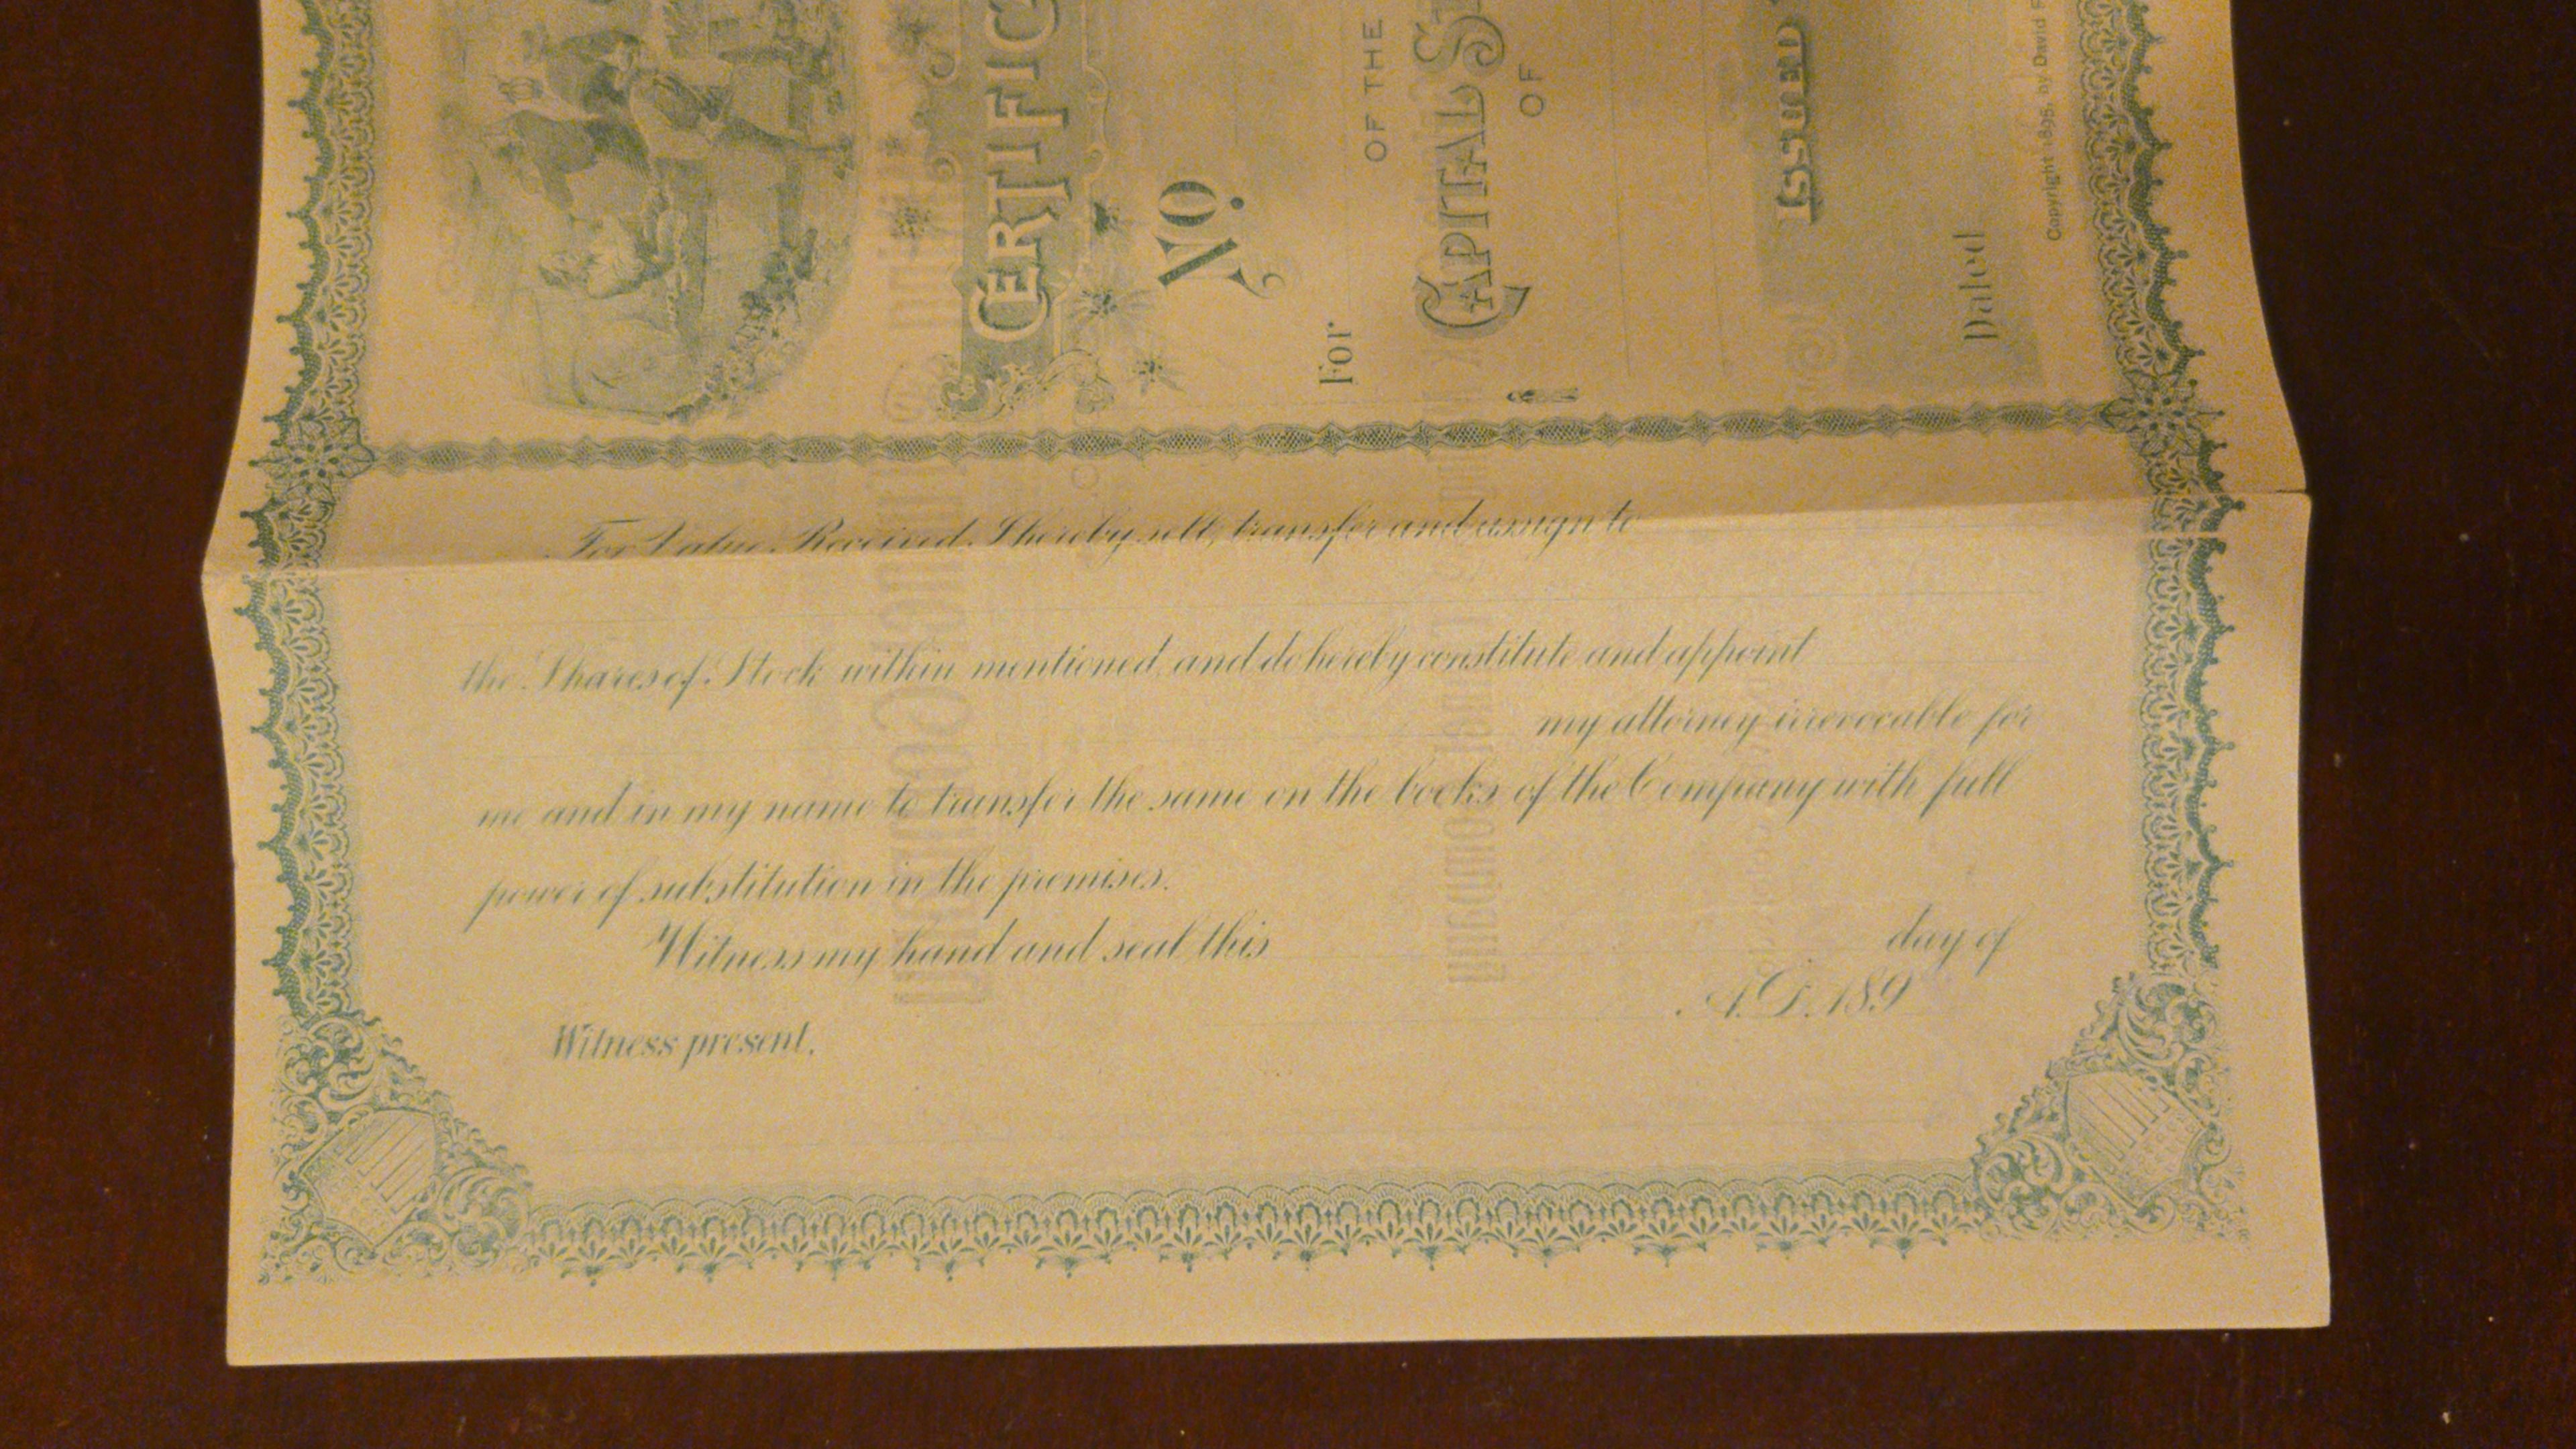 CERTIFIC
No.
For
OF THE
CAPITAL S
OF
ISSUED
Dated
Copyright 1895, by David F
For Value Received I hereby sell, transfer and assign to
the Shares of Stock within mentioned, and do hereby constitute and appoint
my attorney irrevocable for
me and in my name to transfer the same on the books of the Company with full
power of substitution in the premises.
Witness my hand and seal this day of
A.D. 189
Witness present.